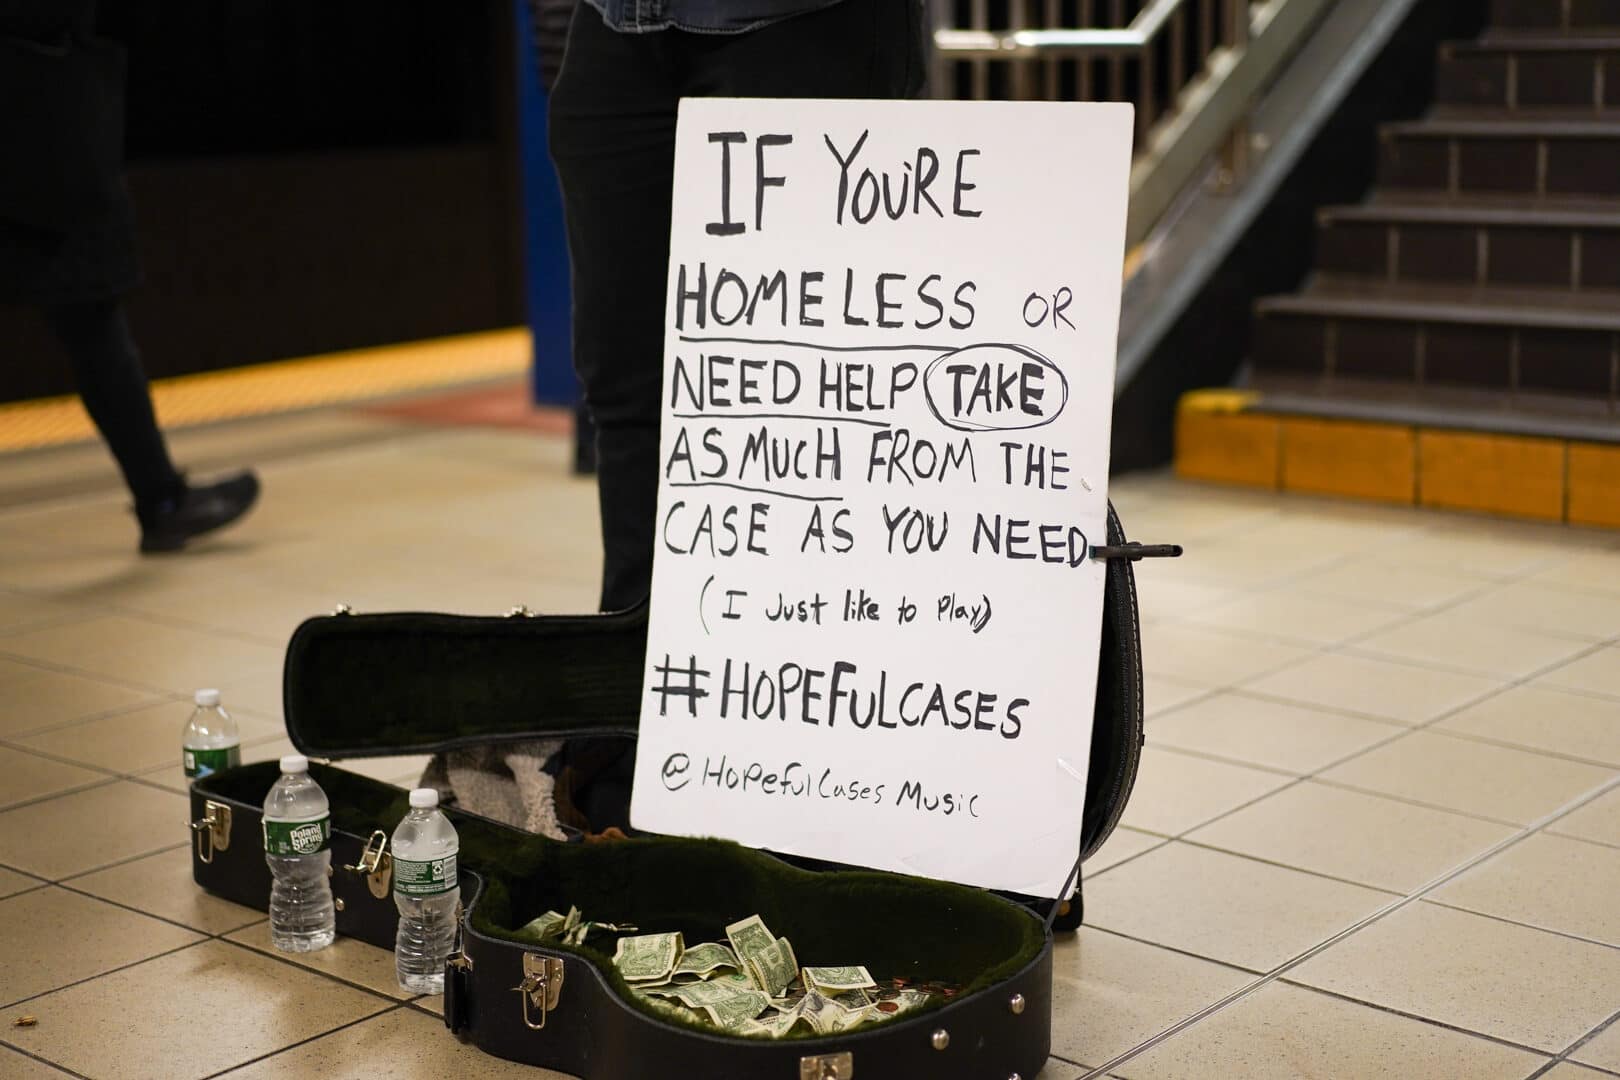 IF YOU'RE
HOMELESS OR
NEED HELP TAKE
AS MUCH FROM THE
CASE AS YOU NEED
(I Just like to Play)
#HOPEFULCASES
@HopefulCases Music
Poland
Spring